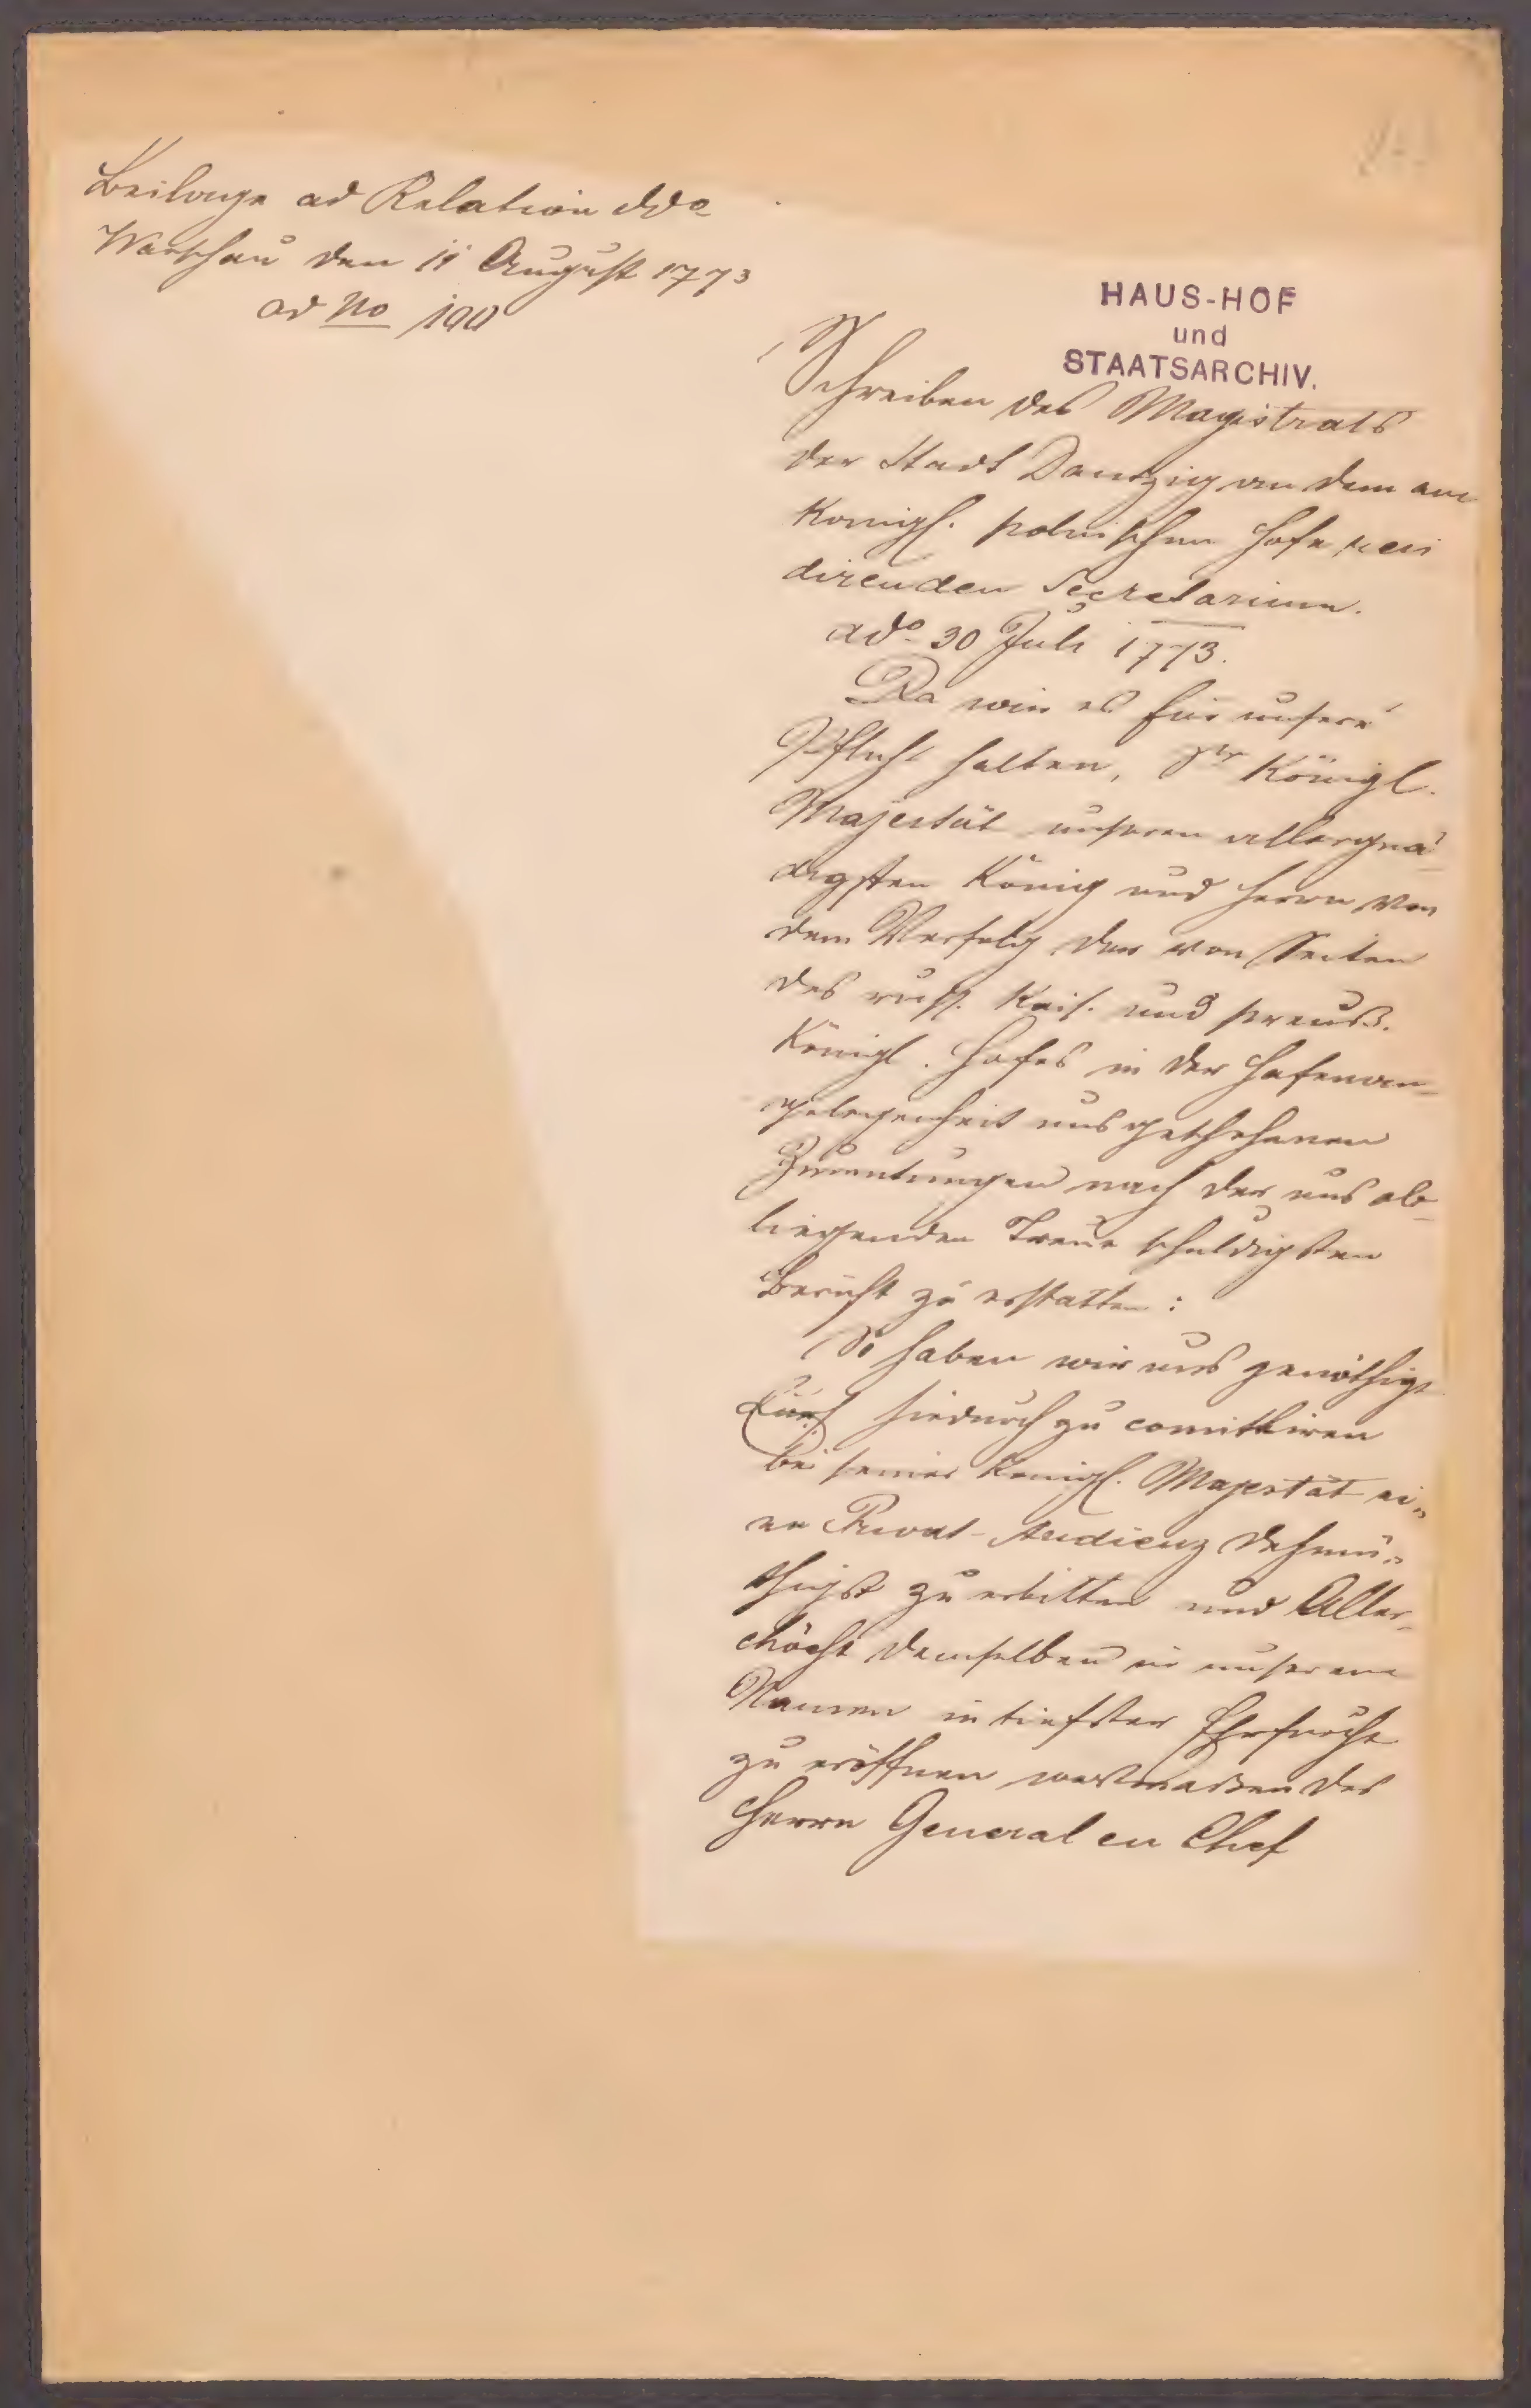 Beilage ad Relation ddo
Warschau den 11 August 1773
ad No 190
HAUS-HOF
und
STAATSARCHIV.
Schreiben des Magistrats
der Stadt Dantzig an dem am
Königl. polnischen Hofe resi
direnden Secretarium.
ddo 30 Juli 1773.
Da wir es für unsere
Pflicht halten, Sr Königl.
Majestät unseren allergnä-
digsten König und Herrn von
dem Verfolg der von Seiten
des russ. Kais. und preuß.
Königl. Hofes in der Hafenan-
gelegenheit uns geschehenen
Zumutungen nach der uns ob-
liegenden Treue schuldigsten
Bericht zu erstatten:
So haben wir uns genöthigt
hiedurch zu comittiren
bei seiner Königl. Majestät ei„
ne Privat-Audienz dehmü„
thigst zu erbitten und Aller-
höchst demselben in unserem
Namen in tiefster Ehrfurcht
zu eröffnen wasmaßen des
Herrn General en Chef